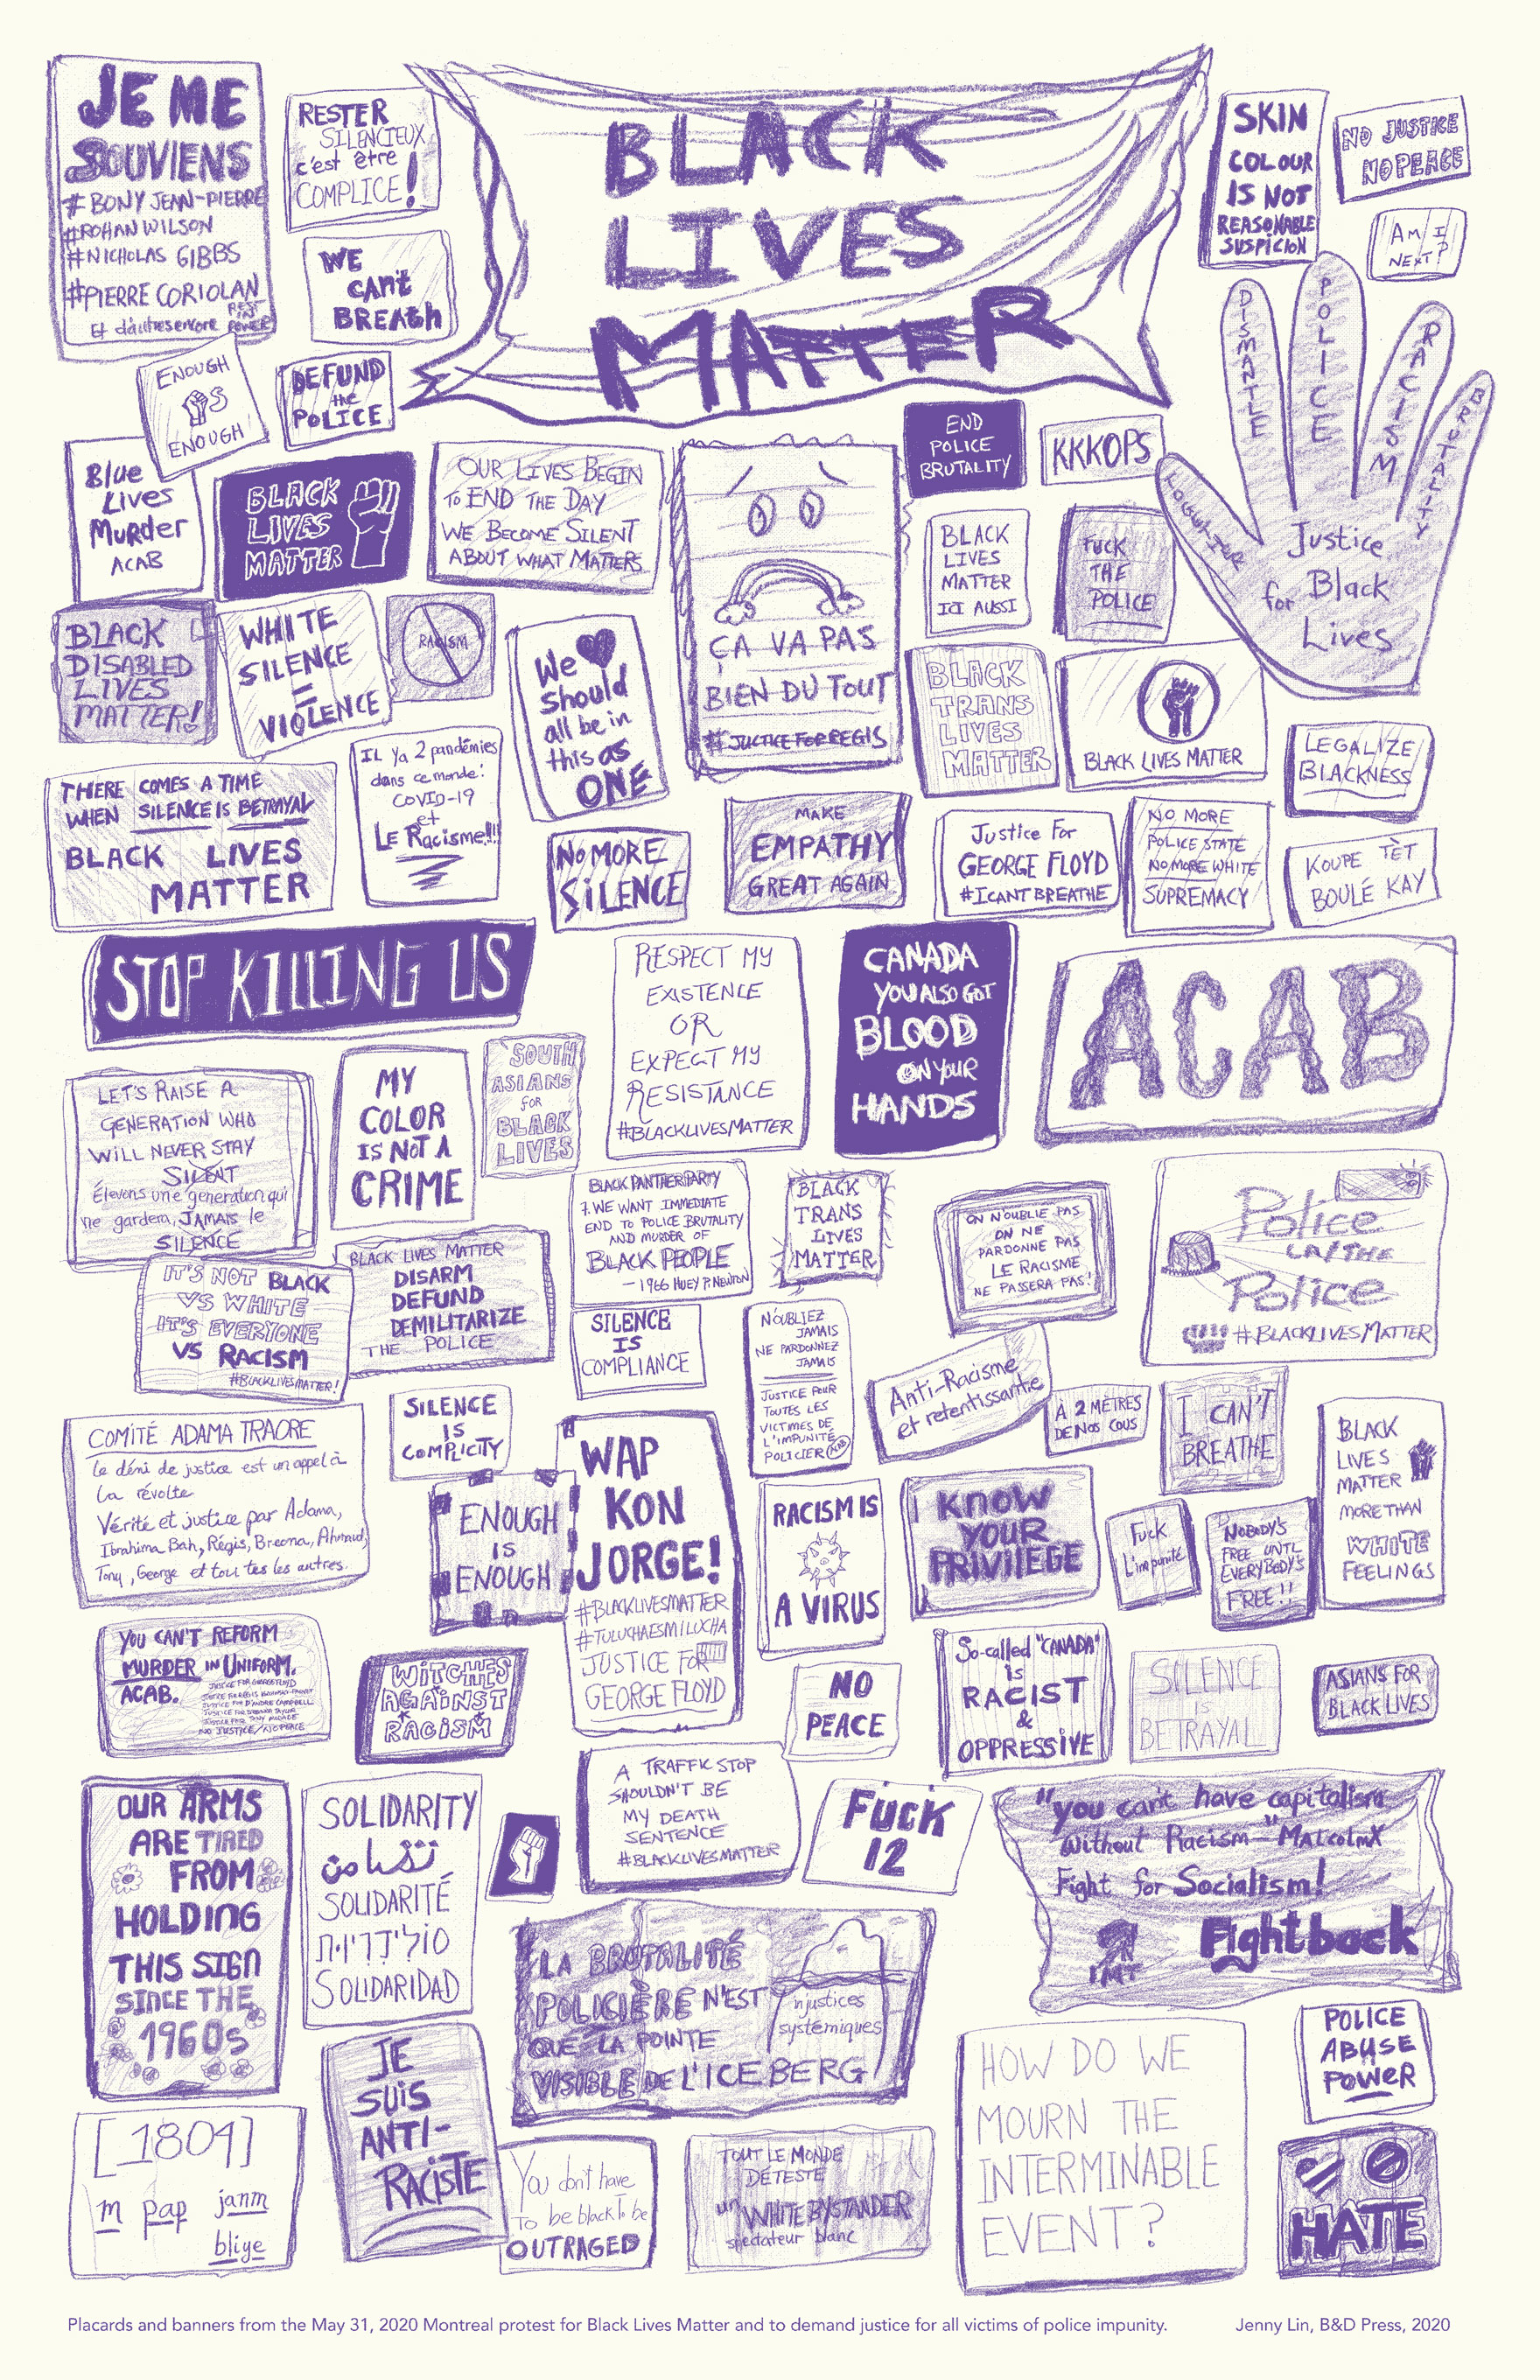 JE ME
SOUVIENS
#BONY JEAN-PIERRE
#ROHAN WILSON
#NICHOLAS GIBBS
#PIERRE CORIOLAN
Et d'autres encore
REST
IN
POWER
RESTER
SILENCIEUX
c'est être
COMPLICE!
WE
CAN'T
BREATH
BLACK
LIVES
MATTER
SKIN
COLOUR
IS NOT
REASONABLE
SUSPICION
NO JUSTICE
NO PEACE
AM I
NEXT?
ENOUGH
IS
ENOUGH
DEFUND
the
POLICE
DISMANTLE
POLICE
RACISM
BRUTALITY
Justice
for Black
Lives
END
POLICE
BRUTALITY
KKKOPS
Blue
Lives
Murder
ACAB
BLACK
LIVES
MATTER
OUR LIVES BEGIN
TO END THE DAY
WE BECOME SILENT
ABOUT WHAT MATTERS
ÇA VA PAS
BIEN DU TOUT
#JUSTICEFORREGIS
BLACK
LIVES
MATTER
ICI AUSSI
FUCK
THE
POLICE
BLACK
DISABLED
LIVES
MATTER!
WHITE
SILENCE
=
VIOLENCE
RACISM
We
should
all be in
this as
ONE
BLACK
TRANS
LIVES
MATTER
BLACK LIVES MATTER
LEGALIZE
BLACKNESS
THERE COMES A TIME
WHEN SILENCE IS BETRAYAL
BLACK LIVES
MATTER
IL Ya 2 pandémies
dans ce monde:
COVID-19
et
LE Racisme!!!
NO MORE
SILENCE
MAKE
EMPATHY
GREAT AGAIN
Justice For
GEORGE FLOYD
#ICANTBREATHE
NO MORE
POLICE STATE
NO MORE WHITE
SUPREMACY
KOUPE TÈT
BOULÉ KAY
STOP KILLING US
RESPECT MY
EXISTENCE
OR
EXPECT MY
RESISTANCE
#BLACKLIVESMATTER
CANADA
YOU ALSO GOT
BLOOD
ON YOUR
HANDS
ACAB
LET'S RAISE A
GENERATION WHO
WILL NEVER STAY
SILENT
Élevons une generation qui
ne gardera JAMAIS le
SILENCE
MY
COLOR
IS NOT A
CRIME
SOUTH
ASIANS
FOR
BLACK
LIVES
BLACK PANTHER PARTY
7. WE WANT IMMEDIATE
END TO POLICE BRUTALITY
AND MURDER OF
BLACK PEOPLE
- 1966 HUEY P. NEWTON
BLACK
TRANS
LIVES
MATTER
ON N'OUBLIE PAS
ON NE
PARDONNE PAS
LE RACISME
NE PASSERA PAS!
Police
Police
#BLACKLIVESMATTER
IT'S NOT BLACK
VS WHITE
IT'S EVERYONE
VS RACISM
#BLACKLIVESMATTER!
BLACK LIVES MATTER
DISARM
DEFUND
DEMILITARIZE
THE POLICE
SILENCE
IS
COMPLIANCE
N'OUBLIEZ
JAMAIS
NE PARDONNEZ
JAMAIS
JUSTICE POUR
TOUTES LES
VICTIMES DE
L'IMPUNITÉ
POLICIER
Anti-Racisme
et retentissante
À 2 MÈTRES
DE NOS COUS
I CAN'T
BREATHE
BLACK
LIVES
MATTER
MORE THAN
WHITE
FEELINGS
COMITÉ ADAMA TRAORE
Le déni de justice est un appel à
la révolte
Vérité et justice par Adama,
Ibrahima Bah, Régis, Breona, Ahmaud,
Tony, George et tou tes les autres.
SILENCE
IS
COMPLICITY
ENOUGH
IS
ENOUGH
WAP
KON
JORGE!
#BLACKLIVESMATTER
#TULUCHAESMILUCHA
JUSTICE FOR
GEORGE FLOYD
RACISM IS
A VIRUS
KNOW
YOUR
PRIVILEGE
Fuck
L'impunité
NOBODY'S
FREE UNTIL
EVERYBODY'S
FREE!!
YOU CAN'T REFORM
MURDER IN UNIFORM.
ACAB.
JUSTICE FOR GEORGE FLOYD
JUSTICE FOR REGIS KORCHINSKI-PAQUET
JUSTICE FOR D'ANDRE CAMPBELL
JUSTICE FOR BREONNA TAYLOR
JUSTICE FOR TONY MCDADE
NO JUSTICE/NO PEACE
WITCHES
AGAINST
RACISM
NO
PEACE
So-called "CANADA"
is
RACIST
&
OPPRESSIVE
SILENCE
IS
BETRAYAL
ASIANS FOR
BLACK LIVES
OUR ARMS
ARE TIRED
FROM
HOLDING
THIS SIGN
SINCE THE
1960s
SOLIDARITY
تضامن
SOLIDARITÉ
סולידריות
SOLIDARIDAD
A TRAFFIC STOP
SHOULDN'T BE
MY DEATH
SENTENCE
#BLACKLIVESMATTER
FUCK
12
"you can't have capitalism
without Racism" - MALCOLM X
Fight for Socialism!
Fightback
IMT
LA BRUTALITÉ
POLICIÈRE N'EST
QUE LA POINTE
VISIBLE DE L'ICEBERG
injustices
systémiques
POLICE
ABUSE
POWER
JE
SUIS
ANTI-
RACISTE
[1804]
m pap janm
bliye
You don't have
To be black To be
OUTRAGED
TOUT LE MONDE
DÉTESTE
un WHITE BYSTANDER
spectateur blanc
HOW DO WE
MOURN THE
INTERMINABLE
EVENT?
HATE
Placards and banners from the May 31, 2020 Montreal protest for Black Lives Matter and to demand justice for all victims of police impunity.
Jenny Lin, B&D Press, 2020